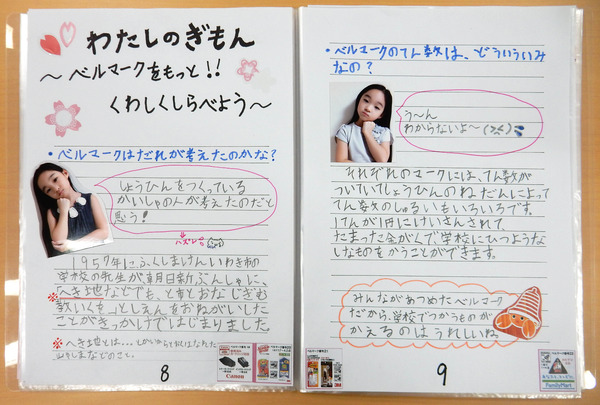 わたしのぎもん
〜ベルマークをもっと!!
くわしくしらべよう〜
・ベルマークはだれが考えたのかな?
しょうひんをつくっている
かいしゃの人が考えたのだと
思う!
ハズレ
1957年にふくしまけんいわき市の
学校の先生が朝日新ぶんしゃに、
「へき地などでも、と市とおなじぎむ
教いくを」としえんをおねがいした
ことがきっかけではじまりました
※へき地とは…とかいからとおくはなれた
山やしまなどのこと。
Canon
8
・ベルマークのてん数は、どういういみ
なの?
う〜ん
わからないよ〜(>_<)
それぞれのマークには、てん数が
ついていてしょうひんのねだんによって
てん数のしゅるいもいろいろです。
1てんが1円にけいさんされて、
たまったお金がくで学校にひつような
しなものをかうことができます。
みんながあつめたベルマーク
だから、学校でつかうものが
かえるのはうれしいね
3M
FamilyMart
9